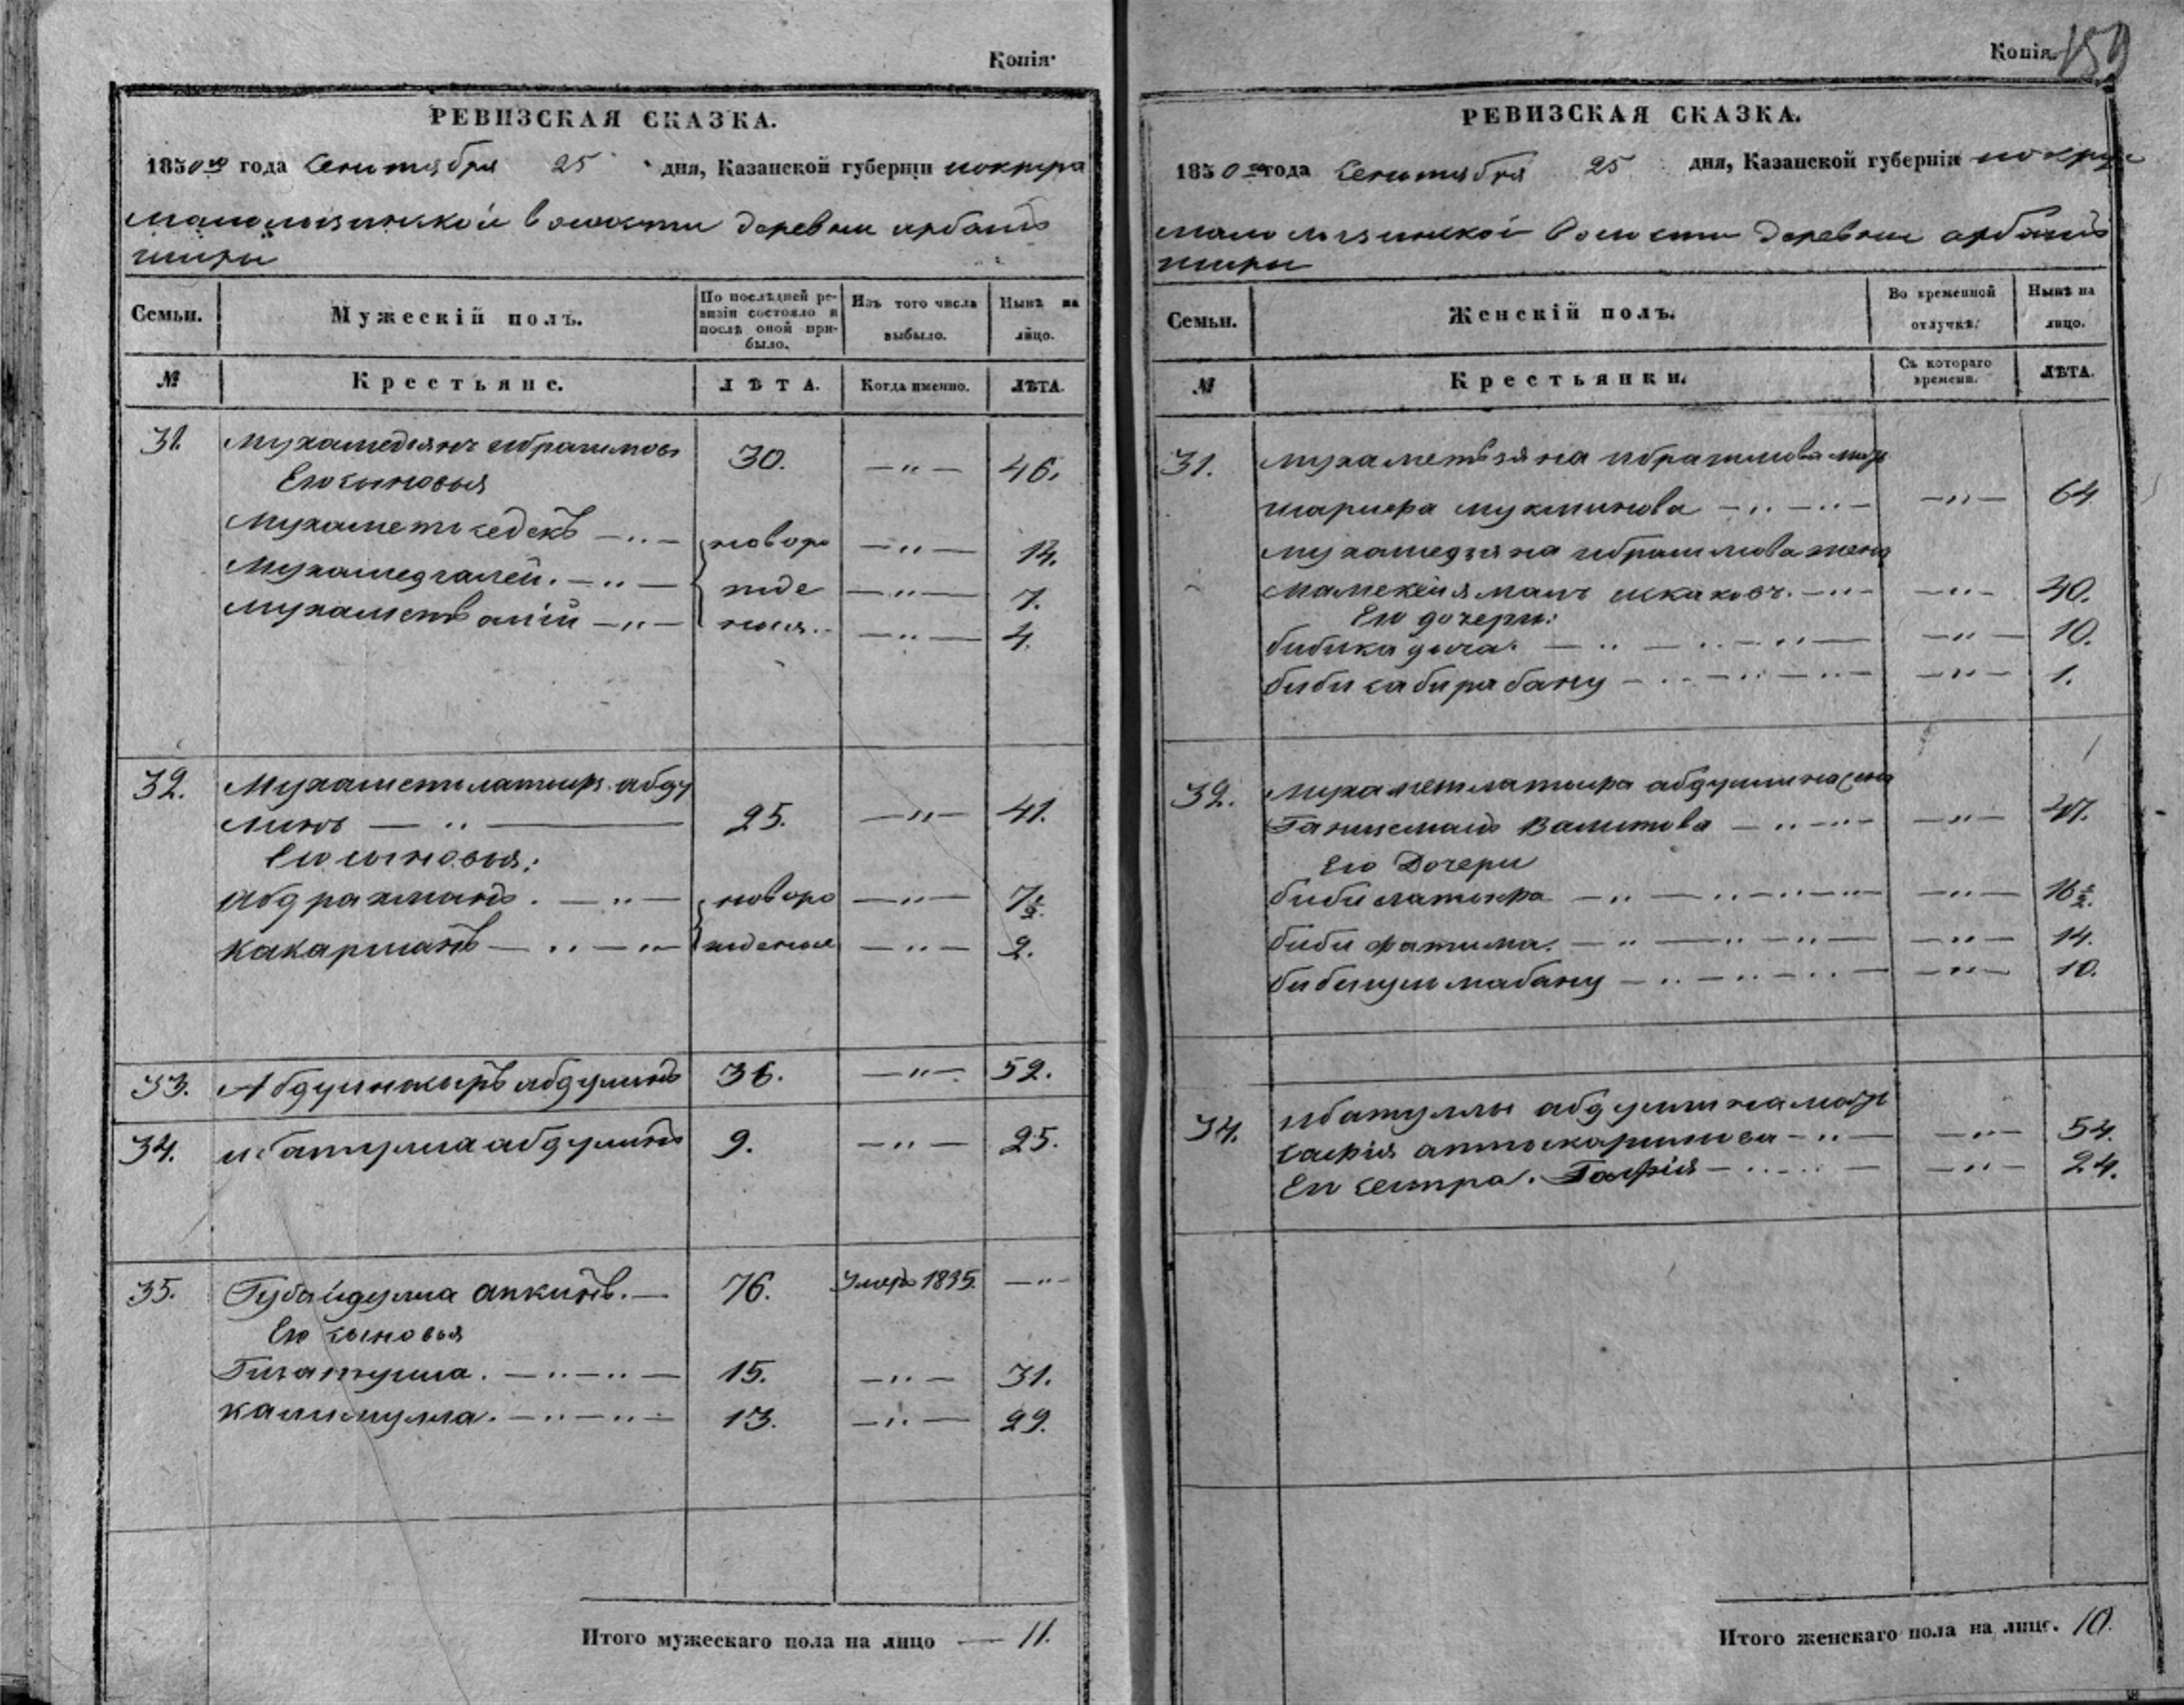 Копія·
РЕВИЗСКАЯ СКАЗКА.
1850го года сентября 25 дня, Казанской губерніи
волости деревни арбаш
ширы
Семьи. Мужескій полъ. По послѣдней ревизіи состояло и послѣ оной прибыло. Изъ того числа выбыло. Нынѣ на лицо.
№ Крестьяне. ЛѢТА. Когда именно. ЛѢТА.
31. Мухамедзянъ ибрагимовъ 30. —"— 46.
Его сыновья
Мухаметседекъ —"— новоро —"— 14.
Мухамедгалей. —"— жде —"— 7.
Мухаметвалій —"— ныя. —"— 4.
32. Мухаметлатыпъ абду
линъ —"— 25. —"— 41.
Его сыновья:
абдрахманъ. —"— новоро —"— 7½.
какарманъ —"—"— жденые —"— 2.
33. Абдулнасыръ абдулинъ 36. —"— 52.
34. ибатулла абдулинъ 9. —"— 25.
35. Губайдулла апкинъ. — 76. Умеръ 1835. —"—
Его сыновья
Гизатулла. —"—"— 15. —"— 31.
калимулла. —"—"— 13. —"— 29.
Итого мужескаго пола на лицо — 11.
Копія. 159
РЕВИЗСКАЯ СКАЗКА.
1850го года сентября 25 дня, Казанской губерніи
волости деревни арбаш
ширы
Семьи. Женскій полъ. Во временной отлучкѣ. Нынѣ на лицо.
№ Крестьянки. Съ котораго времени. ЛѢТА.
31. мухаметьзяна ибрагимова мать
шарифа мукминова —"—"— —"— 64
мухамедзяна ибрагимова жена
искаковъ. —"— —"— 40.
Его дочери:
бибикадыча. —"—"—"— —"— 10.
биби сабирабану —"—"—"— —"— 1.
32. мухаметлатыпа абдулина жена
Ганиземалъ Валитова —"—"— —"— 41.
Его Дочери
биби латыфа —"—"—"— —"— 16½.
биби фатима. —"—"—"— —"— 14.
бибигулмабану —"—"—"— —"— 10.
34. ибатуллы абдулина мать
сафія —"— —"— 54.
Его сестра. Гафія —"—"— —"— 24.
Итого женскаго пола на лицо. 10.